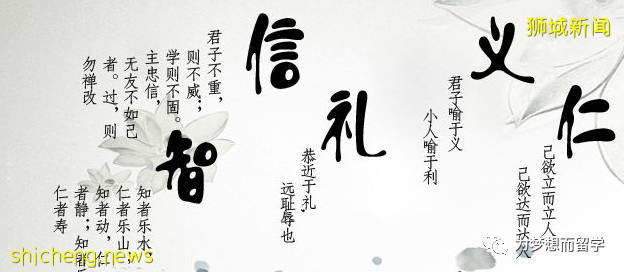 狮城新闻
仁
己欲立而立人
己欲达而达人
义
君子喻于义
小人喻于利
礼
恭近于礼,
远耻辱也
信
君子不重,
则不威;
学则不固。
主忠信,
无友不如己
者。过,则
勿禅改
智
知者乐水,
仁者乐山;
知者动,仁
者静;知者
仁者寿
shicheng.news
为梦想而留学